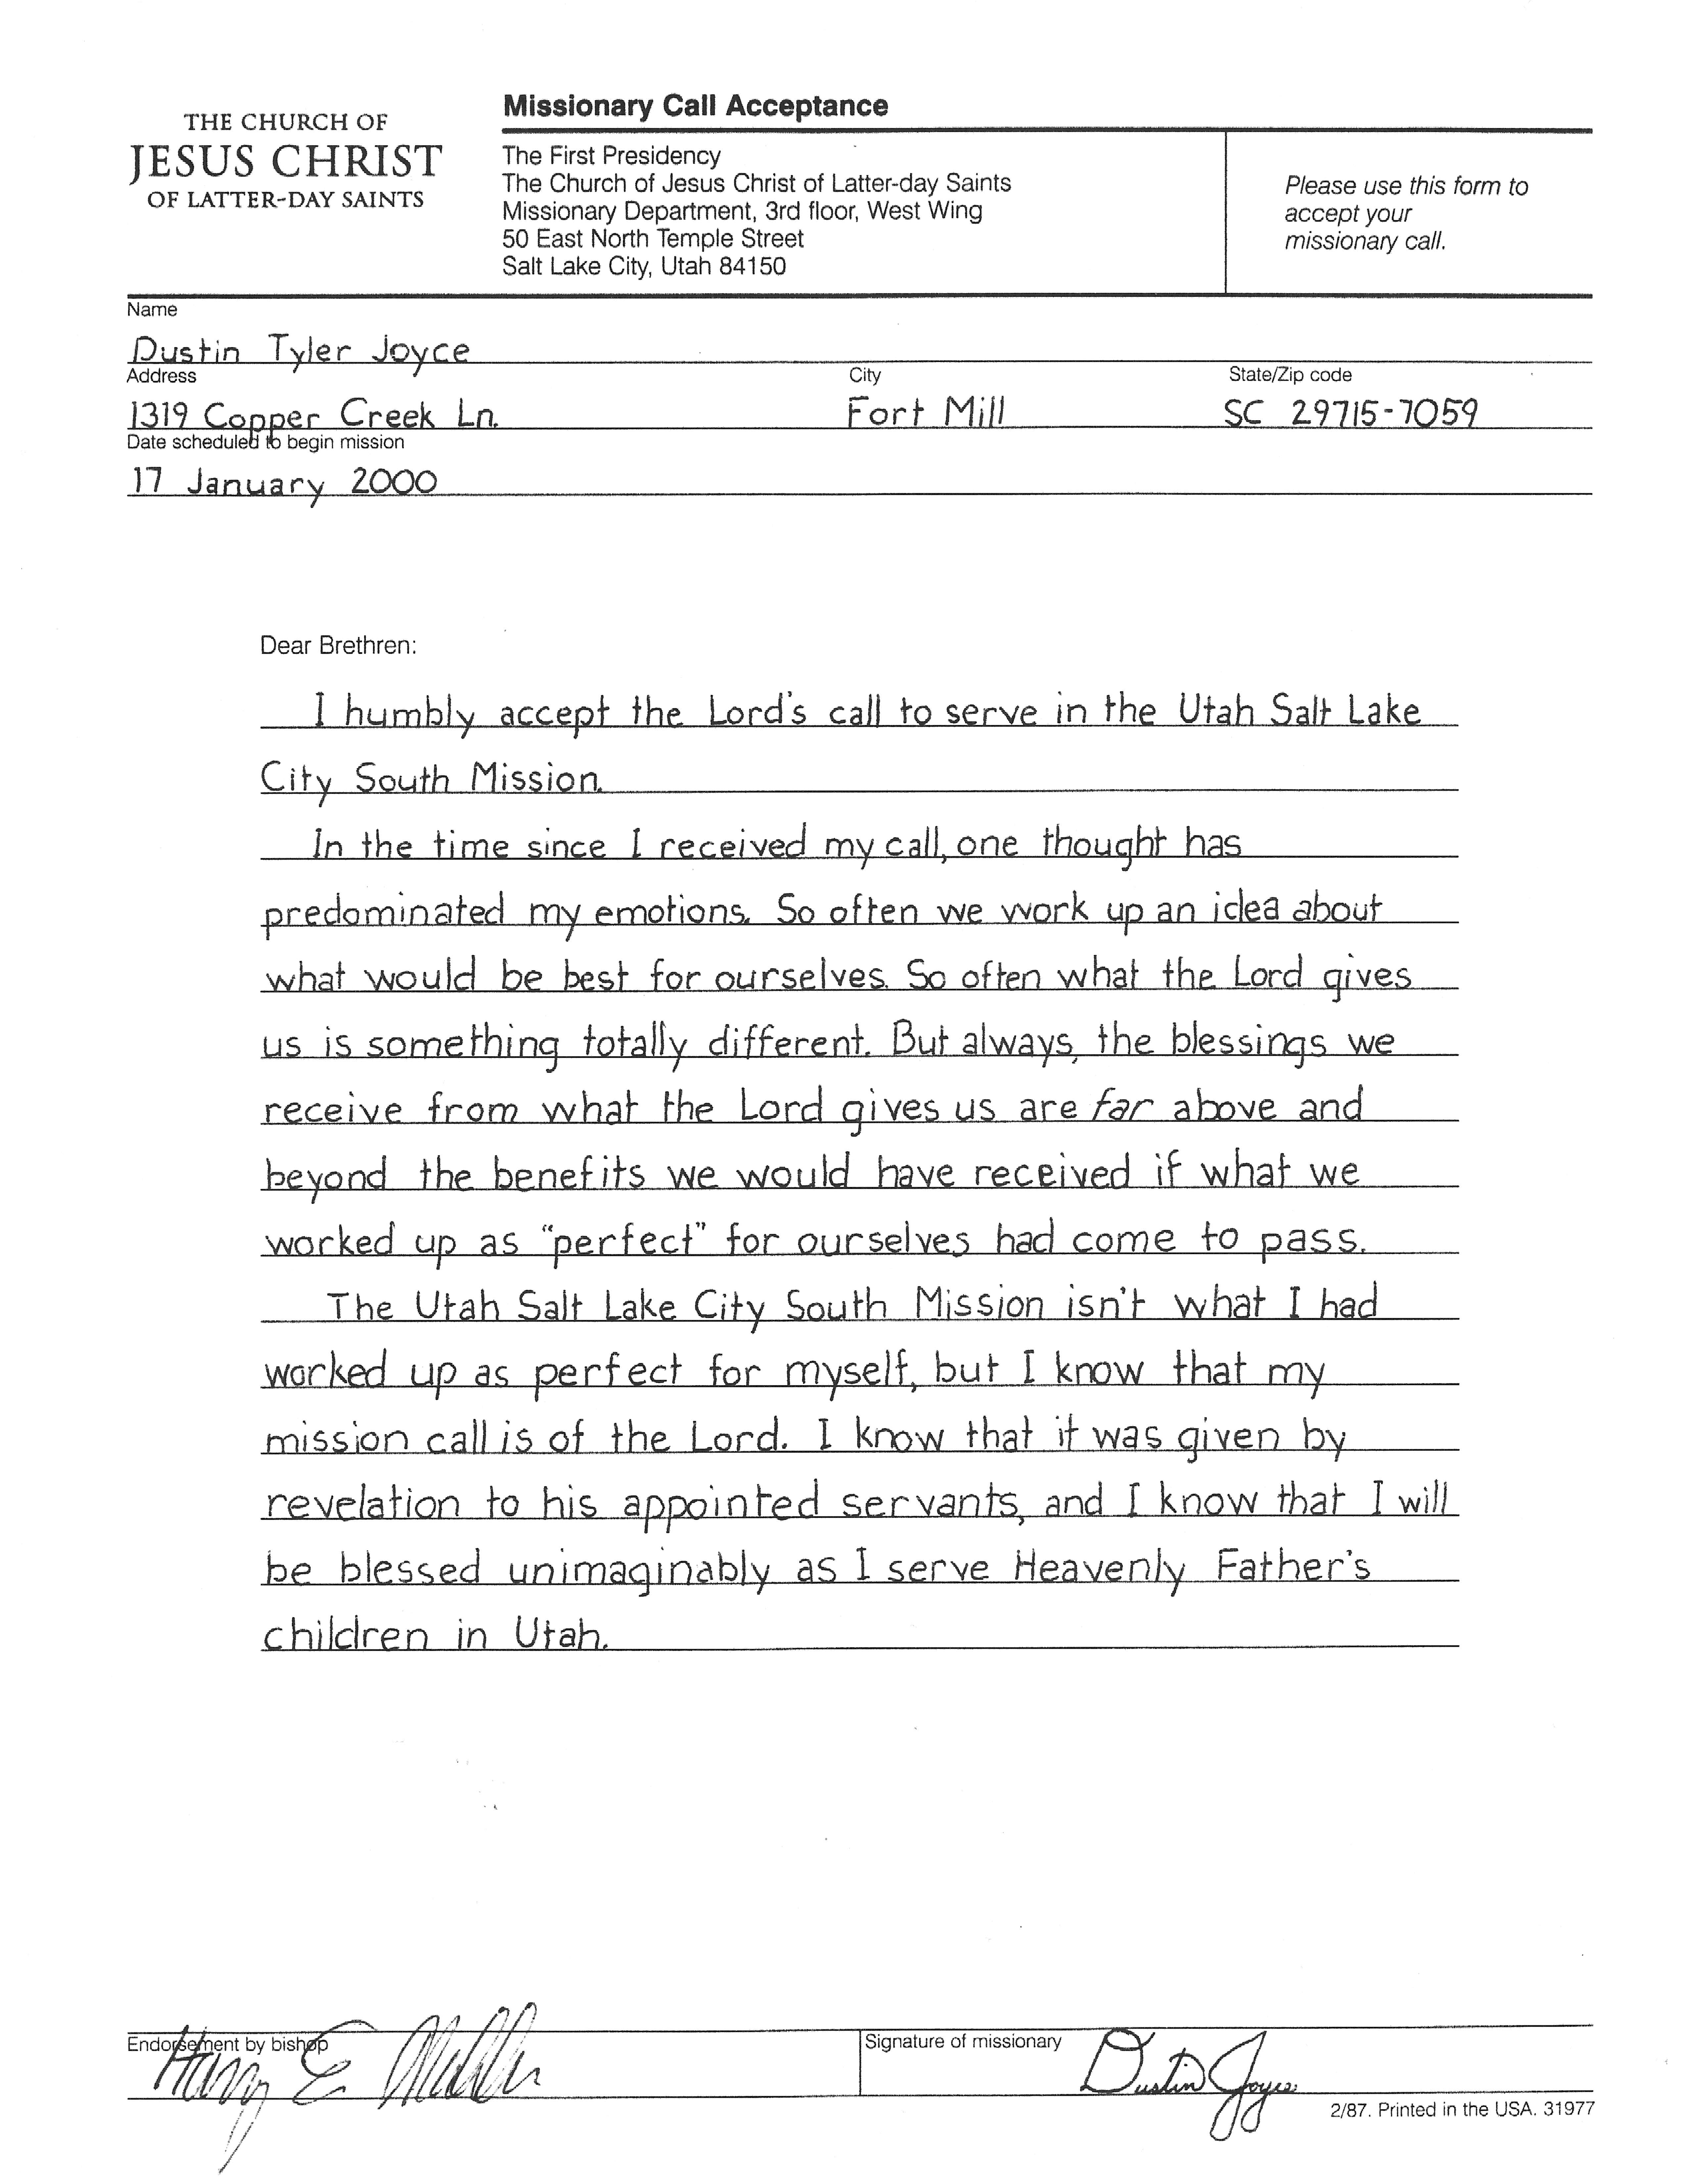 Missionary Call Acceptance
THE CHURCH OF
JESUS CHRIST
OF LATTER-DAY SAINTS
The First Presidency
The Church of Jesus Christ of Latter-day Saints
Missionary Department, 3rd floor, West Wing
50 East North Temple Street
Salt Lake City, Utah 84150
Please use this form to
accept your
missionary call.
Name
Dustin Tyler Joyce
Address City State/Zip code
1319 Copper Creek Ln. Fort Mill SC 29715-7059
Date scheduled to begin mission
17 January 2000
Dear Brethren:
I humbly accept the Lord's call to serve in the Utah Salt Lake
City South Mission.
In the time since I received my call, one thought has
predominated my emotions. So often we work up an idea about
what would be best for ourselves. So often what the Lord gives
us is something totally different. But always, the blessings we
receive from what the Lord gives us are far above and
beyond the benefits we would have received if what we
worked up as "perfect" for ourselves had come to pass.
The Utah Salt Lake City South Mission isn't what I had
worked up as perfect for myself, but I know that my
mission call is of the Lord. I know that it was given by
revelation to his appointed servants, and I know that I will
be blessed unimaginably as I serve Heavenly Father's
children in Utah.
Endorsement by bishop
Signature of missionary
Dustin Joyce
2/87. Printed in the USA. 31977